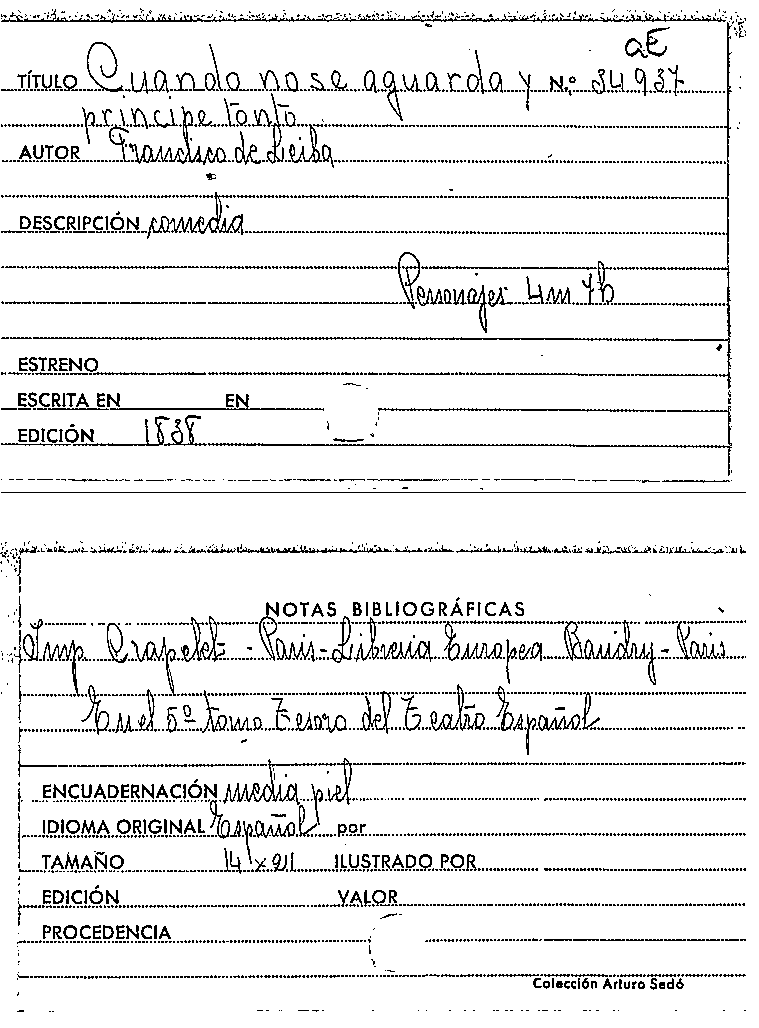 aE
TÍTULO Cuando no se aguarda y N.º 34937
principe tonto
AUTOR Francisco de Leiba
DESCRIPCIÓN comedia
Personajes 4m 7h
ESTRENO
ESCRITA EN EN
EDICIÓN 1838
NOTAS BIBLIOGRÁFICAS
Imp Crapelet - Paris - Libreria Europea Baudry - Paris
En el 5º tomo Tesoro del Teatro Español
ENCUADERNACIÓN media piel
IDIOMA ORIGINAL Español por
TAMAÑO 14 x 211 ILUSTRADO POR
EDICIÓN VALOR
PROCEDENCIA
Colección Arturo Sedó